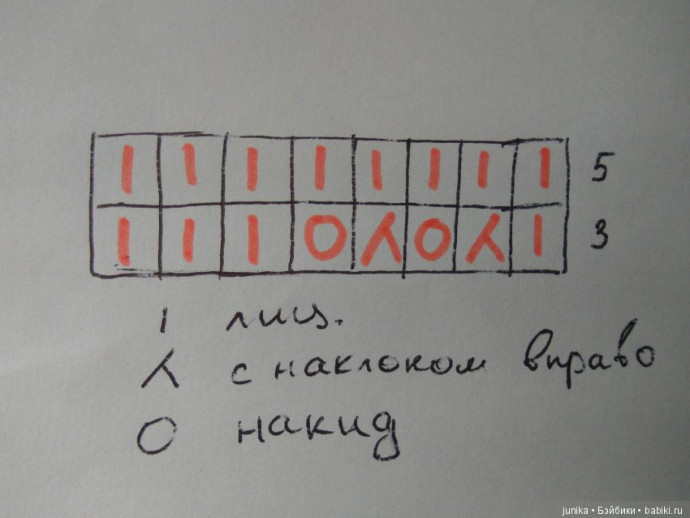 I I I I I I I I 5
I I I O ⅄ O ⅄ I 3
I лиц.
⅄ с наклоном вправо
O накид
junika • Бэйбики • babiki.ru